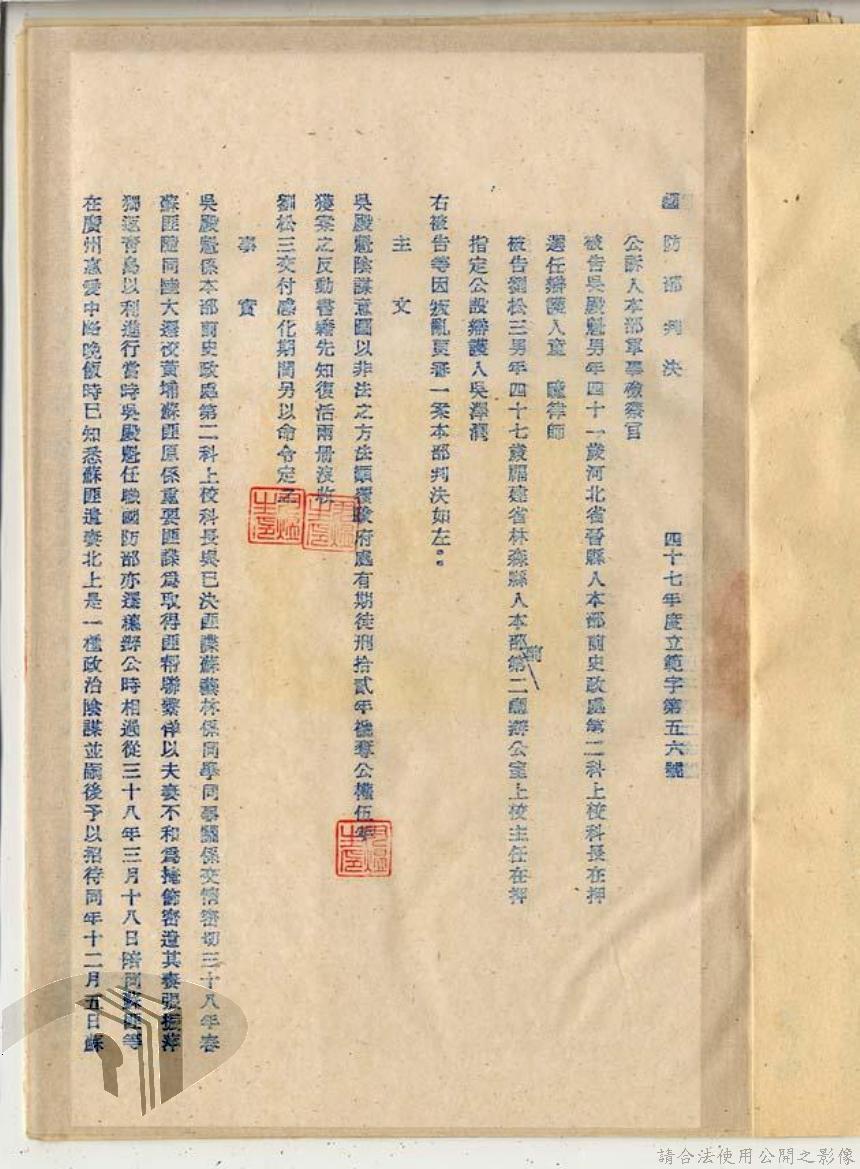 國防部判決 四十七年度立範字第五六號
公訴人本部軍事檢察官
被告吳殿魁男年四十一歲河北省晉縣人本部前史政處第二科上校科長在押
選任辯護人童 律師
被告劉松三男年四十七歲福建省林森縣人本部前第二廳辦公室上校主任在押
指定公設辯護人吳澤潤
右被告等因叛亂更審一案本部判決如左：
主文
吳殿魁陰謀意圖以非法之方法顛覆政府處有期徒刑拾貳年褫奪公權伍年
獲案之反動書籍先知復活兩册沒收
劉松三交付感化期間另以命令定之
事實
吳殿魁係本部前史政處第二科上校科長與已決匪諜蘇藝林係同學同事關係交情密切三十八年春
蘇匪隨同陸大遷校黃埔蘇匪原係重要匪諜為取得匪幫聯繫佯以夫妻不和為掩飾密遣其妻張振萍
獨返青島以利進行當時吳殿魁任職國防部亦遷穗辦公時相過從三十八年三月十八日陪同蘇匪等
在廣州惠愛中路晚飯時已知悉蘇匪遣妻北上是一種政治陰謀並嗣後予以招待同年十二月五日蘇
請合法使用公開之影像